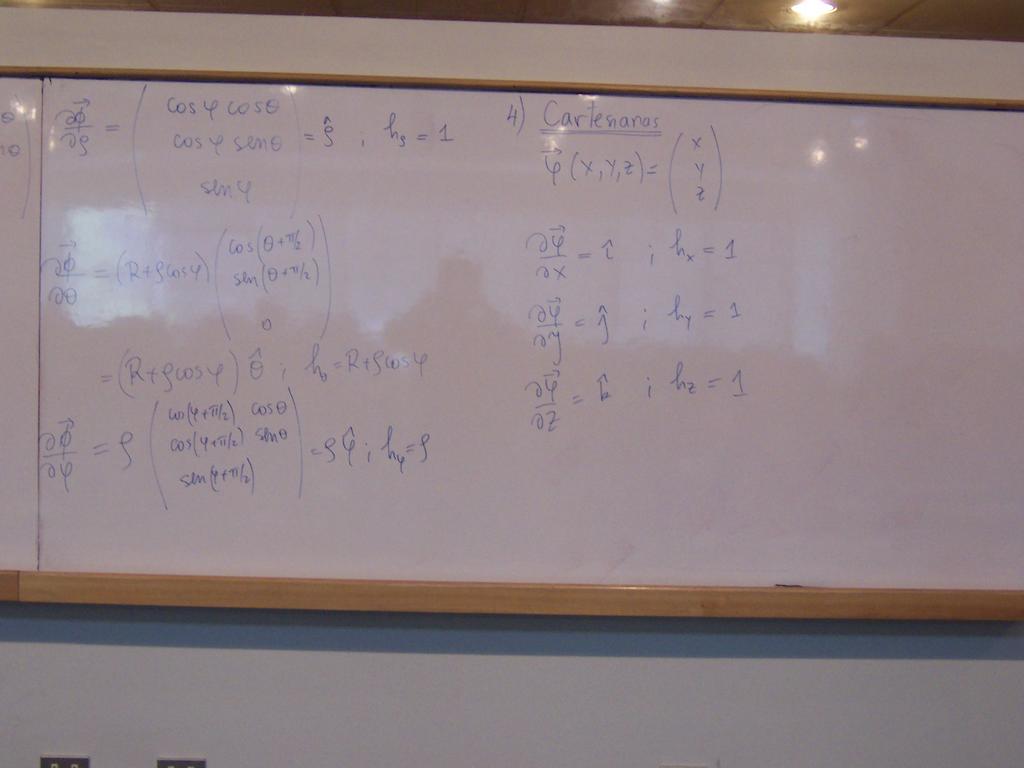 θ
nθ
∂Φ⃗/∂ρ = ( cosφ cosθ
cosφ senθ
senφ ) = ρ̂ ; hρ = 1
∂Φ⃗/∂θ = (R+ρcosφ) ( cos(θ+π/2)
sen(θ+π/2)
0 )
= (R+ρcosφ) θ̂ ; hθ = R+ρcosφ
∂Φ⃗/∂φ = ρ ( cos(φ+π/2) cosθ
cos(φ+π/2) senθ
sen(φ+π/2) ) = ρ φ̂ ; hφ = ρ
4) Cartesianas
φ⃗ (x,y,z) = ( x
y
z )
∂φ⃗/∂x = î ; hx = 1
∂φ⃗/∂y = ĵ ; hy = 1
∂φ⃗/∂z = k̂ ; hz = 1